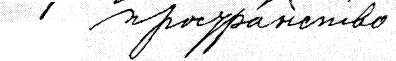 пространство